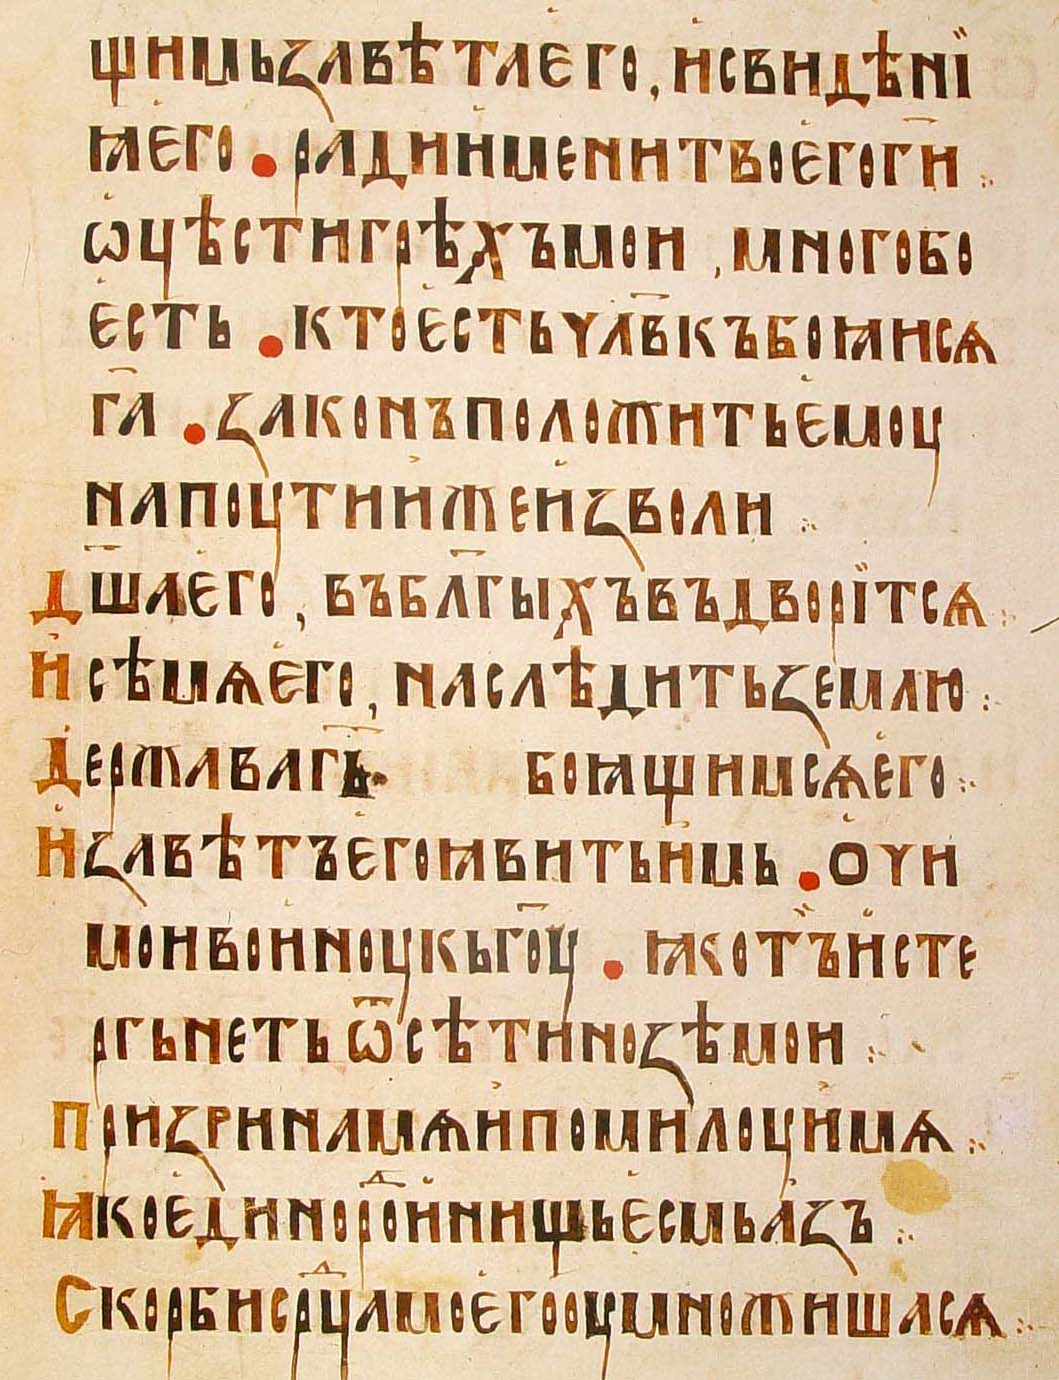 щимьзавѣтаего, исвидѣнї
ꙗего • радиименитвоегоги҃
ѡцѣстигрѣхъмои, многобо
есть • ктоестьчл҃вкъбоꙗисѧ
га҃ • законъположитьемоу
напоутиижеизволи
дш҃аего, въбл҃гыхъвъдворїтсѧ
исѣмѧего, наслѣдитьземлю
державагь҃ боꙗщимсѧего
изавѣтъегоꙗвитьимь • Оꙋи
моивоиноукьго҃у • ꙗкотъисте
ргьнетьѿсѣтинозѣмои
призринамѧипомилоуимѧ
ꙗкоединороⷣинищьесмьазъ
Скорбисрⷣцамоегооумножишасѧ